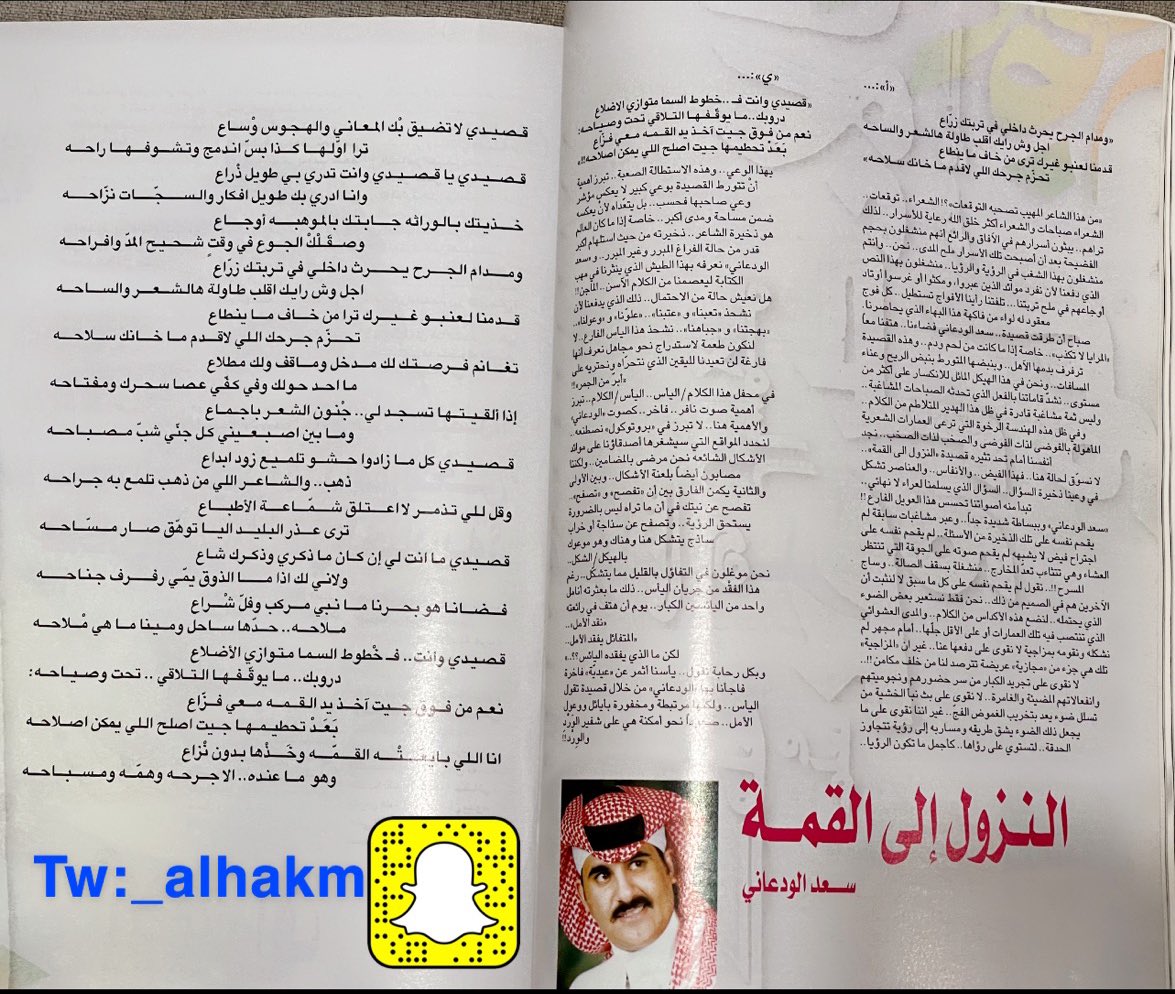 «أ»:...
«ومدام الجرح يحرث داخلي في تربتك زرّاع
اجل وش رابك اقلب طاولة هالشعر والساحه
قدمنا لعنبو غيرك ترى من خاف ما ينطاع
تحزّم جرحك اللي لاقدم ما خانك سلاحه»
«من هذا الشاعر المهيب تصحبه التوقعات»؟!! الشعراء.. توقعات..
الشعراء صباحات والشعراء أكثر خلق الله رعاية للأسرار.. لذلك
تراهم.. يبثون أسرارهم في الآفاق والرائع أنهم منشغلون بحجم
الفضيحة بعد ان أصبحت تلك الأسرار ملح المدى.. نحن.. وأنتم
منشغلون بهذا الشغب في الرؤية والرؤيا.. منشغلون بهذا النص
الذي دفعنا لأن نفرد موائد الذين عبروا، ومكثوا أو غرسوا أوتاد
أوجاعهم في ملح تربتنا... تلفتنا رأينا الأفواج تستطيل.. كل فوج
معقود له لواء من فاكهة هذا البهاء الذي يحاصرنا.
صباح أن طرقت قصيدة.. سعد الودعاني فضاءنا.. هتفنا معاً
«المرايا لا تكذب».. خاصة إذا ما كانت من لحم ودم.. وهذه القصيدة
ترفرف بدمها الأهل.. وبنبضها المتورط بنبض الريح وعناء
المسافات.. ونحن في هذا الهيكل المائل للانكسار على أكثر من
مستوى.. نشدّ قاماتنا بالفعل الذي تحدثه الصباحات المشاغبة..
وليس ثمة مشاغبة قادرة في ظل هذا الهدير المتلاطم من الكلام..
وفي ظل هذه الهندسة الرخوة التي ترعى العمارات الشعرية
المأهولة بالفوضى لذات الفوضى والصخب لذات الصخب.. نجد
أنفسنا أمام تحد تثيره قصيدة «النزول الى القمة»..
لا نسوّق لحالة هنا.. فهذا الفيض.. والأنفاس.. والعناصر تشكل
في وعينا ذخيرة السؤال.. السؤال الذي يسلمنا لعراء لا نهائي..
تبدأ منه أصواتنا تحسس هذا العويل الفارغ!!
«سعد الودعاني» وببساطة شديدة جداً.. وعبر مشاغبات سابقة لم
يقحم نفسه على تلك الذخيرة من الأسئلة.. لم يقحم نفسه على
اجتراح فيض لا يشبهه لم يقحم صوته على الجوقة التي تنتظر
العشاء وهي تتثاءب تعدّ المخارج.. منشغلة بسقف الصالة.. وساج
المسرح!!.. نقول لم يقحم نفسه على كل ما سبق لا لنثبت أن
الآخرين هم في الصميم من ذلك.. نحن فقط نستعير بعض الضوء
الذي يحتمله.. لنضع هذه الأكداس من الكلام.. والمدى العشوائي
الذي تنتصب فيه تلك العمارات أو على الأقل جلّها.. أمام مجهر لم
نشكله ونقومه بمزاجية لا نقوى على دفعها عنا.. غير أن «المزاجية»
تلك هي جزء من «مجازية» عريضة تترصد لنا من خلف مكامن!!..
لا نقوى على تجريد الكبار من سر حضورهم ونجوميتهم
وانفعالاتهم المضيئة والغامرة.. لا نقوى على بث نبأ الخشية من
تسلل ضوء يعد بتخريب الغموض الفجّ.. غير اننا نقوى على ما
يجعل ذلك الضوء يشق طريقه ومساربه إلى رؤية تتجاوز
الحدقة.. لتستوي على رؤاها.. كأجمل ما تكون الرؤيا..
«ي»:...
«قصيدي وانت فـ..خطوط السما متوازي الاضلاع
دروبك..ما يوقّفها التلاقي تحت وصياحه:
نعم من فوق جيت آخذ يد القمه معي فزّاع
بَعَدْ تحطيمها جيت اصلح اللي يمكن اصلاحه!!»
بهذا الوعي.. وهذه الاستطالة الصعبة.. تبرز أهمية
أنْ تتورط القصيدة بوعي كبير لا يعكس مؤشر
وعي صاحبها فحسب.. بل يتعداه لأن يعكسه
ضمن مساحة ومدى أكبر.. خاصة إذا ما كان العالم
هو ذخيرة الشاعر.. ذخيرته من حيث استلهام أكبر
قدر من حالة الفراغ المبرر وغير المبرر.. و«سعد
الودعاني» نعرفه بهذا الطيش الذي ينثرنا في مهب
الكتابة ليعصمنا من الكلام الآسن.. الماجن!!
هل نعيش حالة من الاحتمال.. ذلك الذي يدفعنا لأن
نشحذ «تعبنا» و«عتبنا».. «علوّنا» و«عولنا»..
«بهجتنا» و«جباهنا».. نشحذ هذا الياس الفارع.. لا
لنكون طعمة لاستدراج نحو مجاهل نعرف أنها
فارغة لن تعيدنا لليقين الذي نتحرّاه ونحتريه على
«أبر من الجمر»!!
في محفل هذا الكلام/الياس.. الياس/الكلام.. تبرز
أهمية صوت نافر.. فاخر.. كصوت «الودعاني»
والأهمية هنا.. لا تبرز في «بروتوكول» نصطنعه..
لنحدد المواقع التي سيشغرها أصدقاؤنا على موائد
الأشكال الشائعه نحن مرضى بالمضامين.. ولكننا
مصابون أيضاً بلعنة الأشكال.. وبين الأولى
والثانية يكمن الفارق بين إن «تفصح» و«تصفح»..
تفصح عن نيتك في أن ما تراه ليس بالضرورة
يستحق الرؤية.. وتصفح عن سذاجة أو خراب
ساذج يتشكل هنا وهناك وهو موعوك
بالهيكل/الشكل..
نحن موغلون في التفاؤل بالقليل مما يتشكل.. رغم
هذا الفقْد من جريان الياس.. ذلك ما بعثرته أنامل
واحد من اليائسين الكبار.. يوم أن هتف في رائعته
«نقد الأمل»..
«المتفائل يفقد الأمل..
لكن ما الذي يفقده اليائس؟؟..»
وبكل رحابة نقول.. يأسنا أثمر عن «عيديّة» فاخرة
فاجأنا بها «الودعاني» من خلال قصيدة تقول
الياس.. ولكنها مرتبطة ومخفورة بأيائل ووعول
الأمل.. صعوداً نحو أمكنة هي على شفير الوِرْد
والوِرْد!!
النزول إلى القمة
سعد الودعاني
قصيدي لا تضيق بْك المعاني والهجوس وْساع
ترا اوّلها كذا بسّ اندمج وتشوفها راحه
قصيدي يا قصيدي وانت تدري بي طويل ذْراع
وانا ادري بك طويل افكار والسجّات نزّاحه
خذيتك بالوراثه جابتك بالموهبه أوجاع
وصقَلْكْ الجوع في وقتٍ شحيح المدّ وافراحه
ومدام الجرح يحرث داخلي في تربتك زرّاع
اجل وش رابك اقلب طاولة هالشعر والساحه
قدمنا لعنبو غيرك ترا من خاف ما ينطاع
تحزّم جرحك اللي لاقدم ما خانك سلاحه
تغانم فرصتك لك مدخل وماقف ولك مطلاع
ما احد حولك وفي كفّي عصا سحرك ومفتاحه
إذا ألقيتها تسجد لي.. جْنون الشعر باجماع
وما بين اصبعيني كل جنّي شبّ مصباحه
قصيدي كل ما زادوا حشو تلميع زود ابداع
ذهب.. والشاعر اللي من ذهب تلمع به جراحه
وقل للي تذمر لا اعتلق شمّاعة الأطباع
ترى عذر البليد اليا توهّق صار مسّاحه
قصيدي ما انت لي إن كان ما ذكري وذكرك شاع
ولاني لك اذا ما الذوق يمّي رفرف جناحه
فضانا هو بحرنا ما نبي مركب وفلّ شْراع
ملاحه.. حدّها ساحل ومينا ما هي مْلاحه
قصيدي وأنت.. فـ خْطوط السما متوازي الأضلاع
دروبك.. ما يوقّفها التلاقي .. تحت وصياحه:
نعم من فوق جيت آخذ يد القمه معي فزّاع
بَعَدْ تحطيمها جيت اصلح اللي يمكن اصلاحه
انا اللي بايعتْه القمّه وخَذْها بدون نْزاع
وهو ما عنده.. الا جرحه وهمّه ومسباحه
Tw:_alhakm